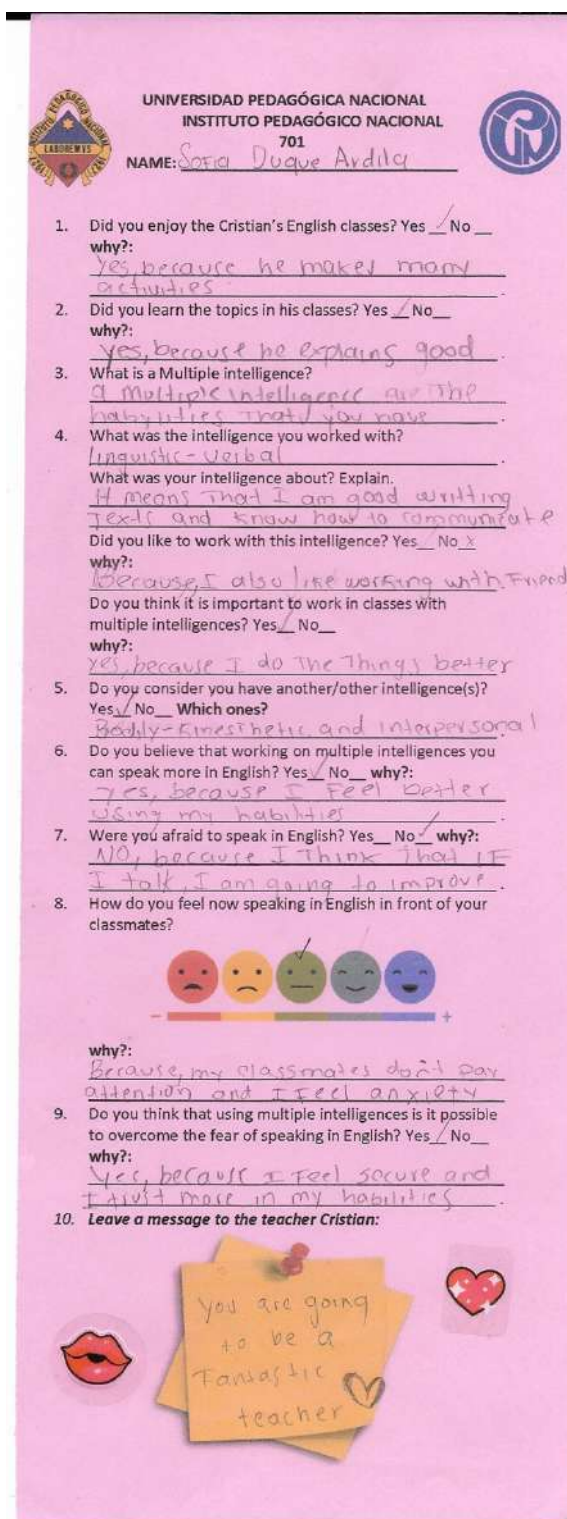 UNIVERSIDAD PEDAGÓGICA NACIONAL
INSTITUTO PEDAGÓGICO NACIONAL
701
NAME: Sofia Duque Ardila
LABOREMVS
1. Did you enjoy the Cristian's English classes? Yes __ No __
why?:
Yes, because he makes many
activities.
2. Did you learn the topics in his classes? Yes __ No__
why?:
yes, because he explains good.
3. What is a Multiple intelligence?
a multiple intelligence are the
habylities that you have.
4. What was the intelligence you worked with?
linguistic-verbal.
What was your intelligence about? Explain.
It means that I am good writting
Texts and know how to communicate
Did you like to work with this intelligence? Yes__ No x
why?:
Because, I also like working with Friend
Do you think it is important to work in classes with
multiple intelligences? Yes__ No__
why?:
yes, because I do The Things better
5. Do you consider you have another/other intelligence(s)?
Yes__ No__ Which ones?
Bodily-Kinesthetic and interpersonal
6. Do you believe that working on multiple intelligences you
can speak more in English? Yes__ No__ why?:
yes, because I Feel better
using my habilities.
7. Were you afraid to speak in English? Yes__ No__ why?:
NO, because I Think That IF
I talk, I am going to improve.
8. How do you feel now speaking in English in front of your
classmates?
- +
why?:
Because, my classmates don't pay
attention and I Feel anxiety
9. Do you think that using multiple intelligences is it possible
to overcome the fear of speaking in English? Yes__ No__
why?:
Yes, because I Feel secure and
I trust more in my habilities.
10. Leave a message to the teacher Cristian:
You are going
to be a
Fansastic
teacher